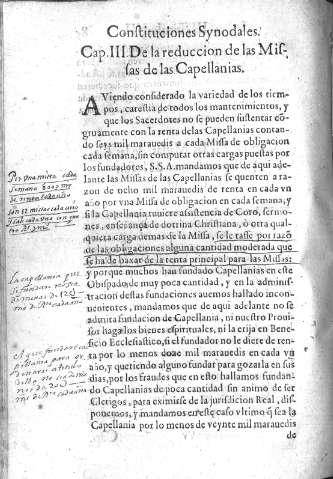 Constituciones Synodales.
Cap. III. De la reduccion de las Mis-
sas de las Capellanias.
AViendo considerado la variedad de los tiem-
pos, carestia de todos los mantenimientos, y
que los Sacerdotes no se pueden sustentar cō
gruamente con la renta delas Capellanias contan-
do seys mil marauedis a cada Missa de obligacion
cada semana, sin computar otras cargas puestas por
los fundadores, S.S.A. mandamos que de aqui ade-
lante las Missas de las Capellanias se quenten a ra-
zon de ocho mil marauedis de renta en cada vn
año por vna Missa de obligacion en cada semana, y
si la Capellania tuuiere assistencia de Coro, sermo-
nes, enseñança de dotrina Christiana, ò otra qual-
quiera carga demas de la Missa, se le tasse por razō
de las obligaciones alguna cantidad moderada que
se ha de baxar de la renta principal para las Missas:
y porque muchos han fundado Capellanias en este
Obispado, de muy poca cantidad, y en la adminis-
tracion destas fundaciones auemos hallado incon-
uenientes, mandamos que de aqui adelante no se
admita fundacion de Capellania, ni nuestro Proui-
sor haga los bienes espirituales, ni la erija en Benefi-
cio Ecclesiastico, si el fundador no le diere de ren-
ta por lo menos doze mil marauedis en cada vn
año, y quetiendo alguno fundar para gozarla en sus
dias, por los fraudes que en esto hallamos fundan-
do Capellanias de poca cantidad sin animo de ser
Clerigos, para eximirse de la jurisdicion Real, dis-
ponemos, y mandamos en este caso vltimo q̄ sea la
Capellania por lo menos de veynte mil marauedis
de
Por una missa cada
semana 8000 mrs
de renta cada año
cada año
La capellania que
se fundare no sea
de menos de 12U
mrs de